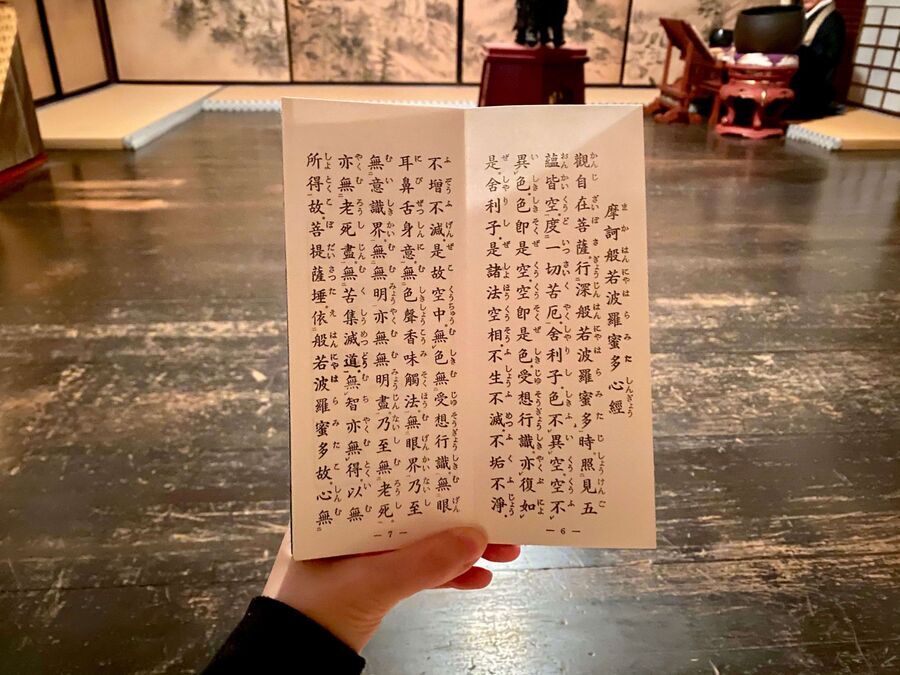 摩訶般若波羅蜜多心經
觀自在菩薩。行深般若波羅蜜多時。照見五
蘊皆空。度一切苦厄。舍利子。色不異空。空不
異色。色即是空。空即是色。受想行識。亦復如
是。舍利子。是諸法空相。不生不滅。不垢不淨。
— 6 —
不增不減。是故空中。無色無受想行識。無眼
耳鼻舌身意。無色聲香味觸法。無眼界乃至
無意識界。無無明亦無無明盡。乃至無老死。
亦無老死盡。無苦集滅道。無智亦無得。以無
所得故。菩提薩埵。依般若波羅蜜多故。心無
— 7 —